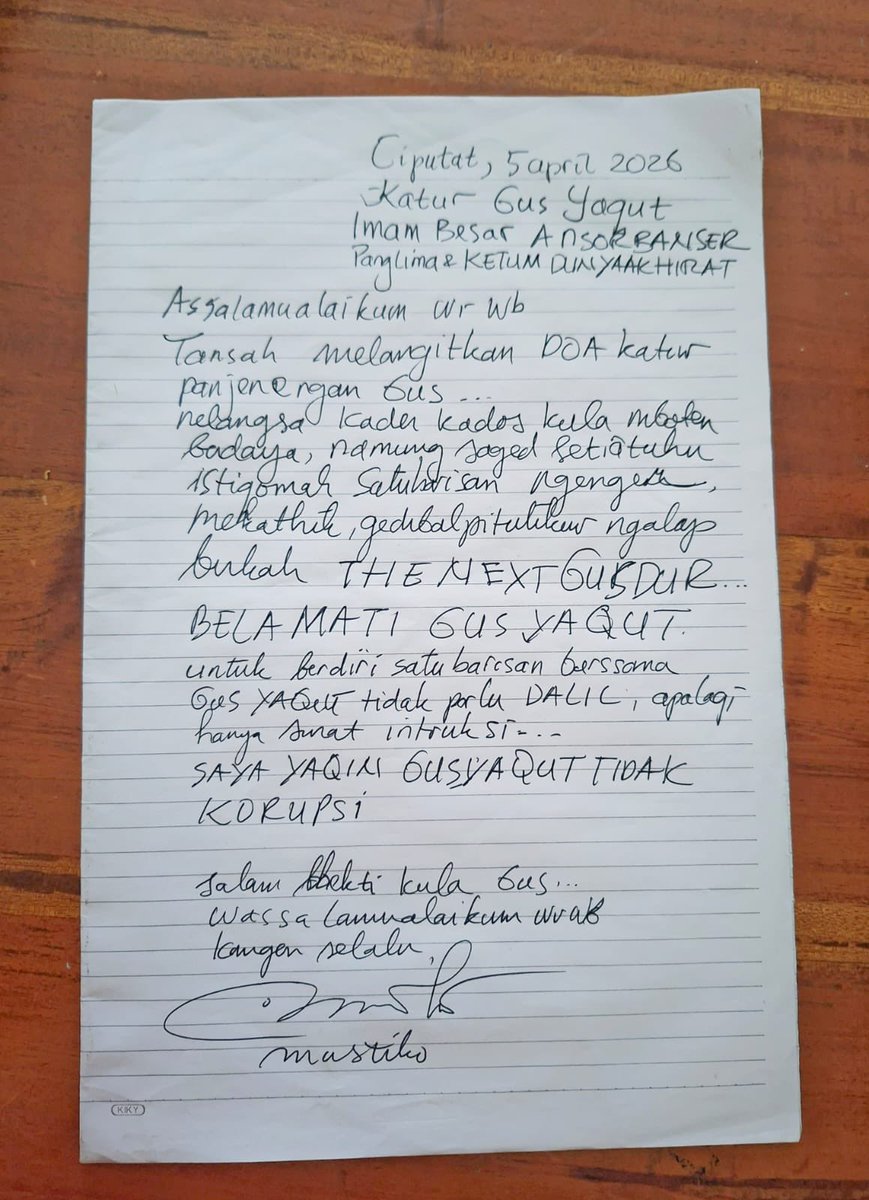 Ciputat, 5 april 2026
Katur Gus Yaqut
Imam Besar ANSORBANSER
Panglima & KETUM DUNYAAKHIRAT
Assalamualaikum wr wb
Tansah melangitkan DOA katur
panjenengan Gus ...
nelangsa kader kados kula mboten
badaya, namung saged setiatuhu
istiqomah satubarisan ngenger,
mekathik, gedibalpitulikur ngalap
berkah THE NEXT GUSDUR...
BELA MATI GUS YAQUT.
untuk berdiri satu barisan berssama
Gus YAQUT tidak perlu DALIL, apalagi
hanya surat intruksi....
SAYA YAQIN GUSYAQUT TIDAK
KORUPSI
salam bhekti kula Gus...
wassalamualaikum wrwb
kangen selalu,
mustiko
KIKY